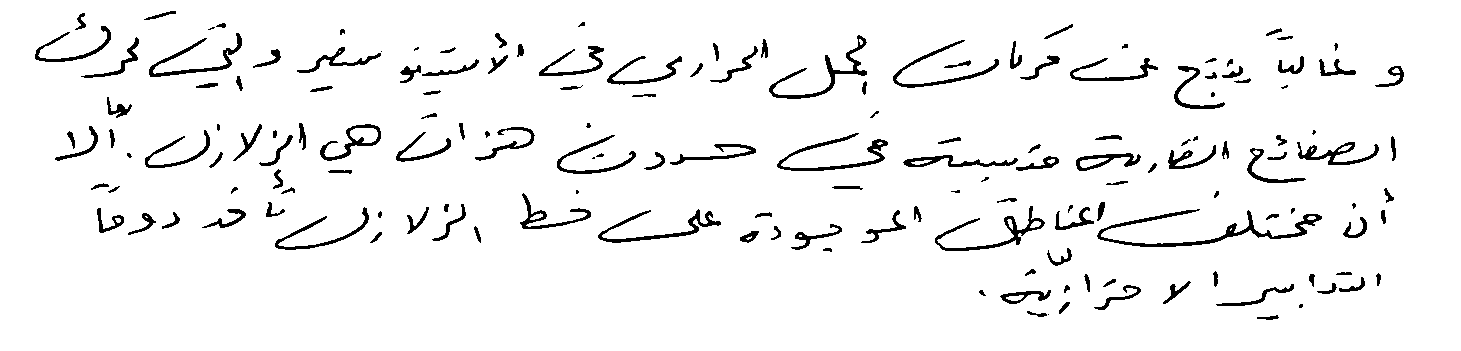 وغالباً ينتج عن حركات الحمل الحراري في الأستينوسفير والتي تحرك
الصفائح القارية متسببة في حدوث هزات هي الزلازل. إلا
أن مختلف المناطق الموجودة على خط الزلازل تأخذ دوماً
التدابير الاحترازيّة.